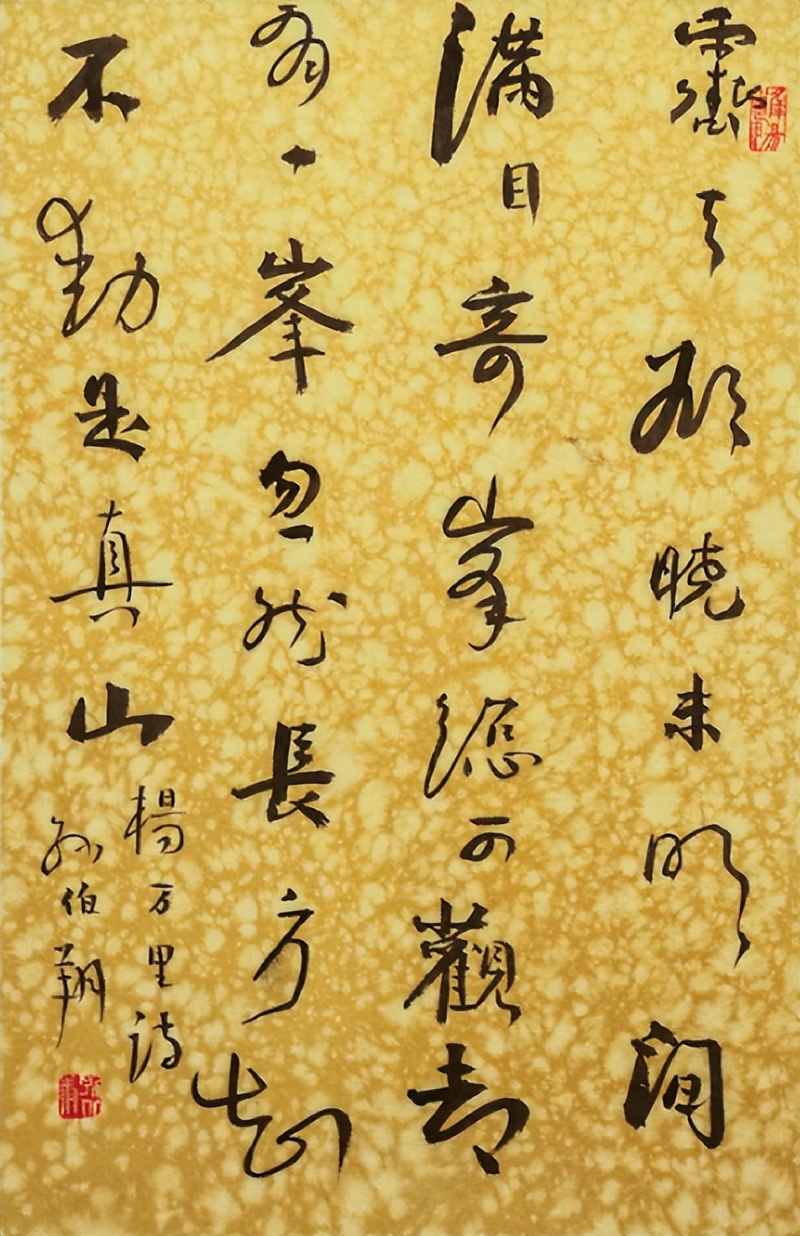 霽天欲曉未明間
滿目奇峯總可觀却
有一峯忽然長方知
不動是真山
楊万里詩
孫伯翔